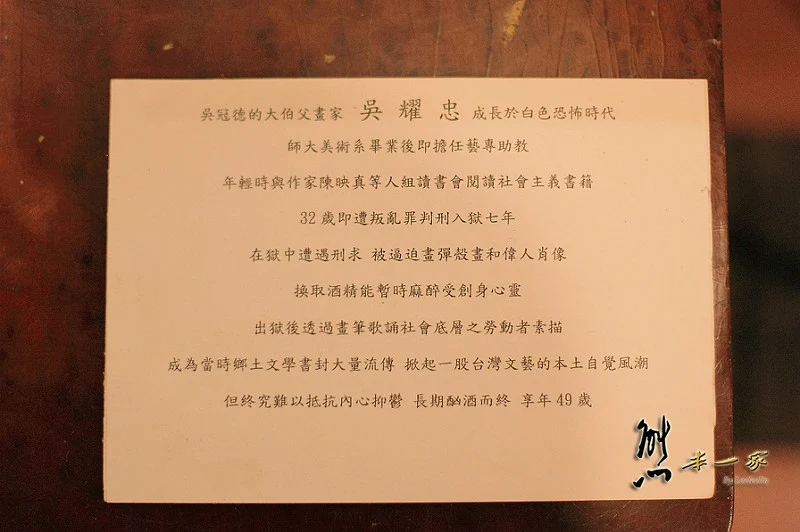 吳冠德的大伯父畫家 吳耀忠 成長於白色恐怖時代
師大美術系畢業後即擔任藝專助教
年輕時與作家陳映真等人組讀書會閱讀社會主義書籍
32歲即遭叛亂罪判刑入獄七年
在獄中遭遇刑求 被逼迫畫彈殼畫和偉人肖像
換取酒精能暫時麻醉受創身心靈
出獄後透過畫筆歌誦社會底層之勞動者素描
成為當時鄉土文學書封大量流傳 掀起一股台灣文藝的本土自覺風潮
但終究難以抵抗內心抑鬱 長期酗酒而終 享年49歲
熊
米一家